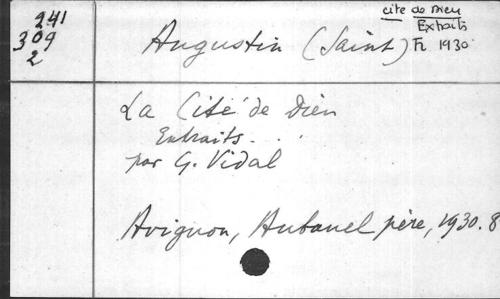 241
309
2
cite de Dieu
Extraits
Fr 1930
Augustin (Saint)
La Cité de Dieu
Extraits...
par G. Vidal
Avignon, Aubanel père, 1930. 8